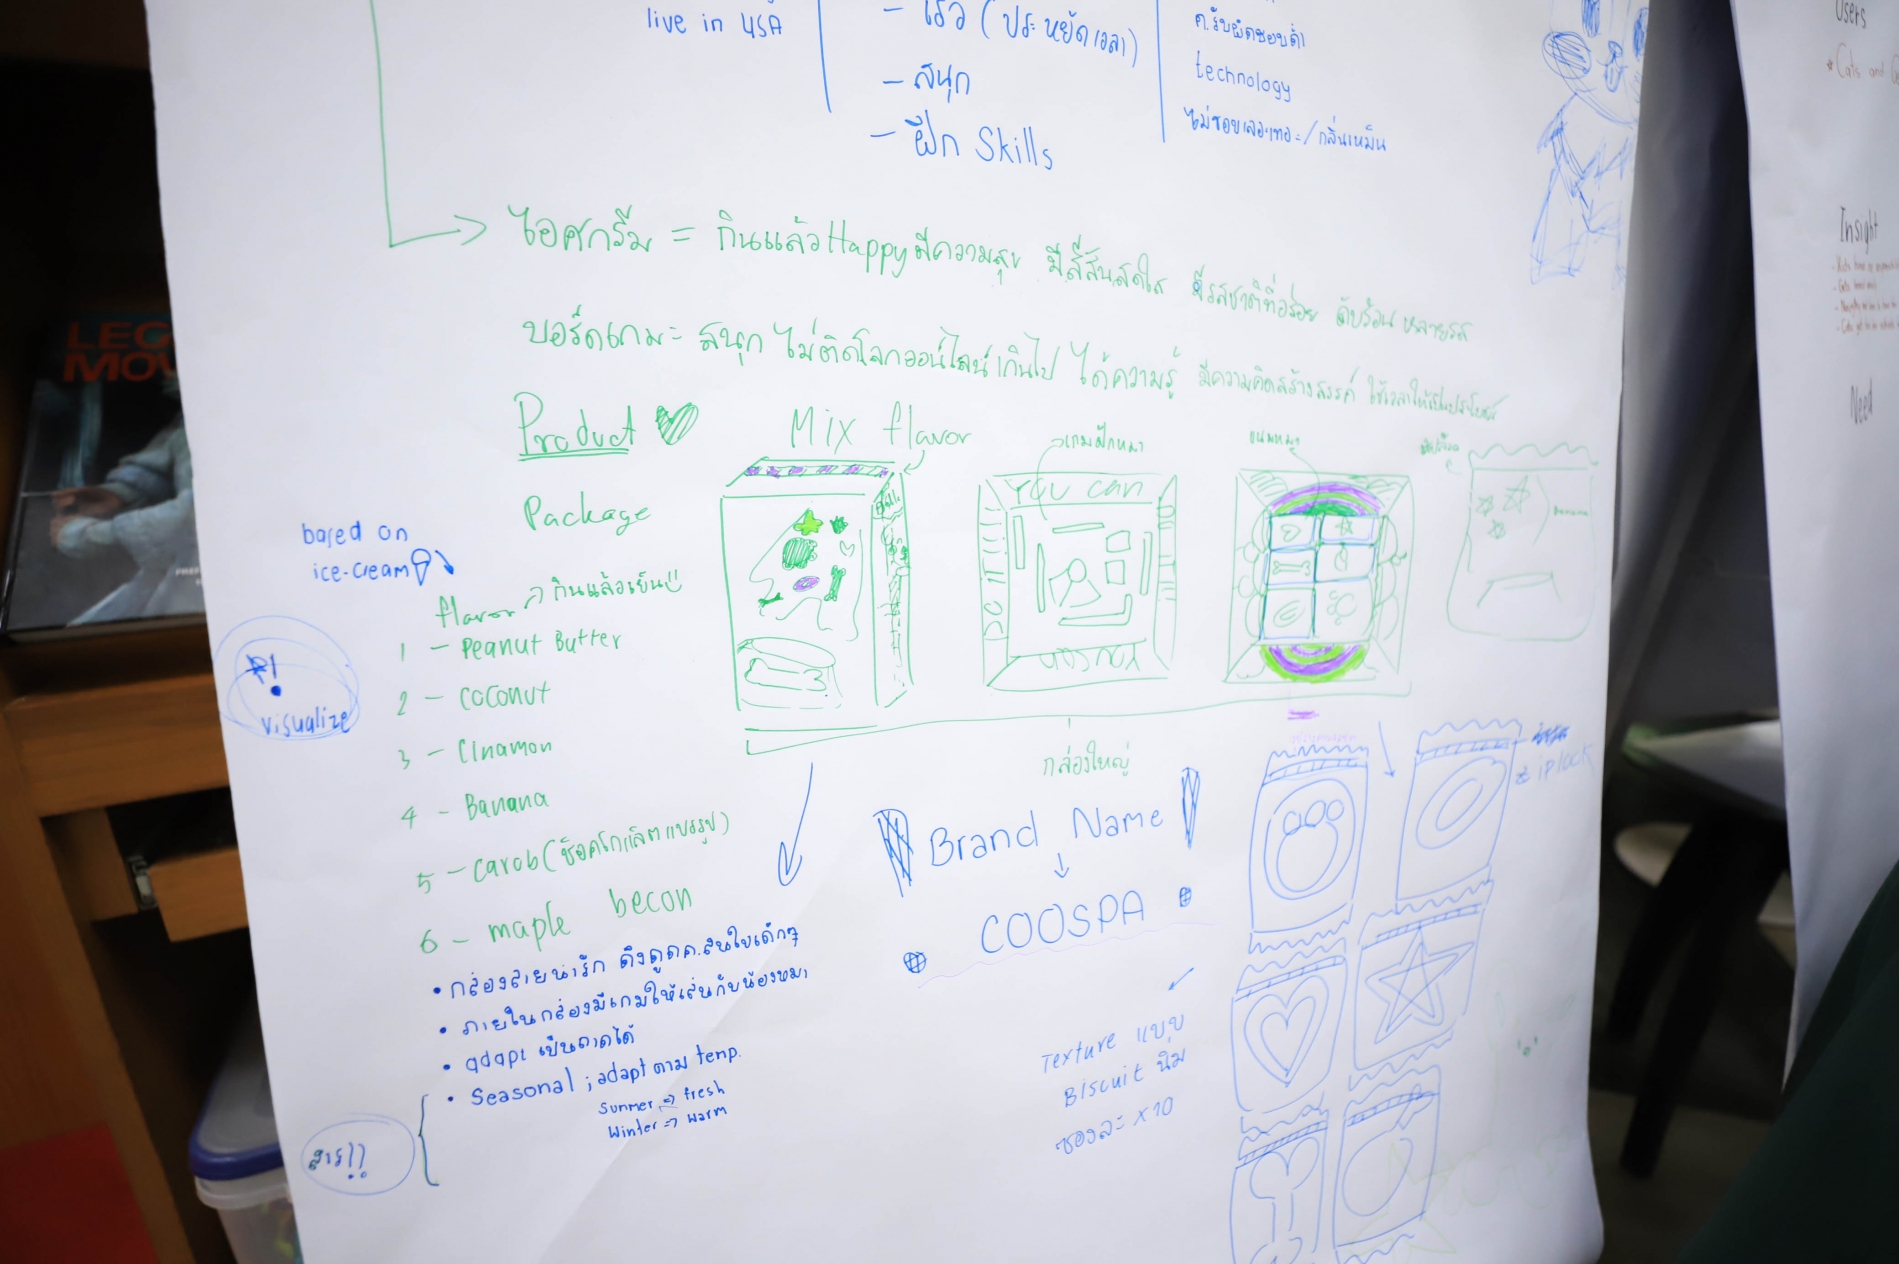 live in USA
- เร็ว (ประหยัดเวลา)
- สนุก
- ฝึก Skills
ค.รับผิดชอบต่ำ
technology
ไม่ชอบเลอะเทอะ/กลิ่นเหม็น
ไอศกรีม = กินแล้วHappyมีความสุข มีสีสันสดใส มีรสชาติที่อร่อย ดับร้อน หลายรส
บอร์ดเกม = สนุก ไม่ติดโลกออนไลน์เกินไป ได้ความรู้ มีความคิดสร้างสรรค์ ใช้เวลาให้เป็นประโยชน์
Product
Mix flavor
Package
เกมฝึกหมา
You can
ขนมหมา
Banana
กล่องใหญ่
based on
ice-cream
flavor กินแล้วเย็น
1 - Peanut Butter
2 - coconut
3 - Cinamon
4 - Banana
5 - carob (ช็อคโกแล็ตแปรรูป)
6 - maple becon
visualize
• กล่องลายน่ารัก ดึงดูดค.สนใจเด็กๆ
• ภายในกล่องมีเกมให้เล่นกับน้องหมา
• adapt เป็นถาดได้
• Seasonal ; adapt ตาม temp.
Summer => fresh
Winter => warm
สาร!!
Brand Name
COOSPA
Texture แบบ
Biscuit นิ่ม
ซองละ x10
ziplock
Users
* Cats and
Insight
Need
LEG
MOV